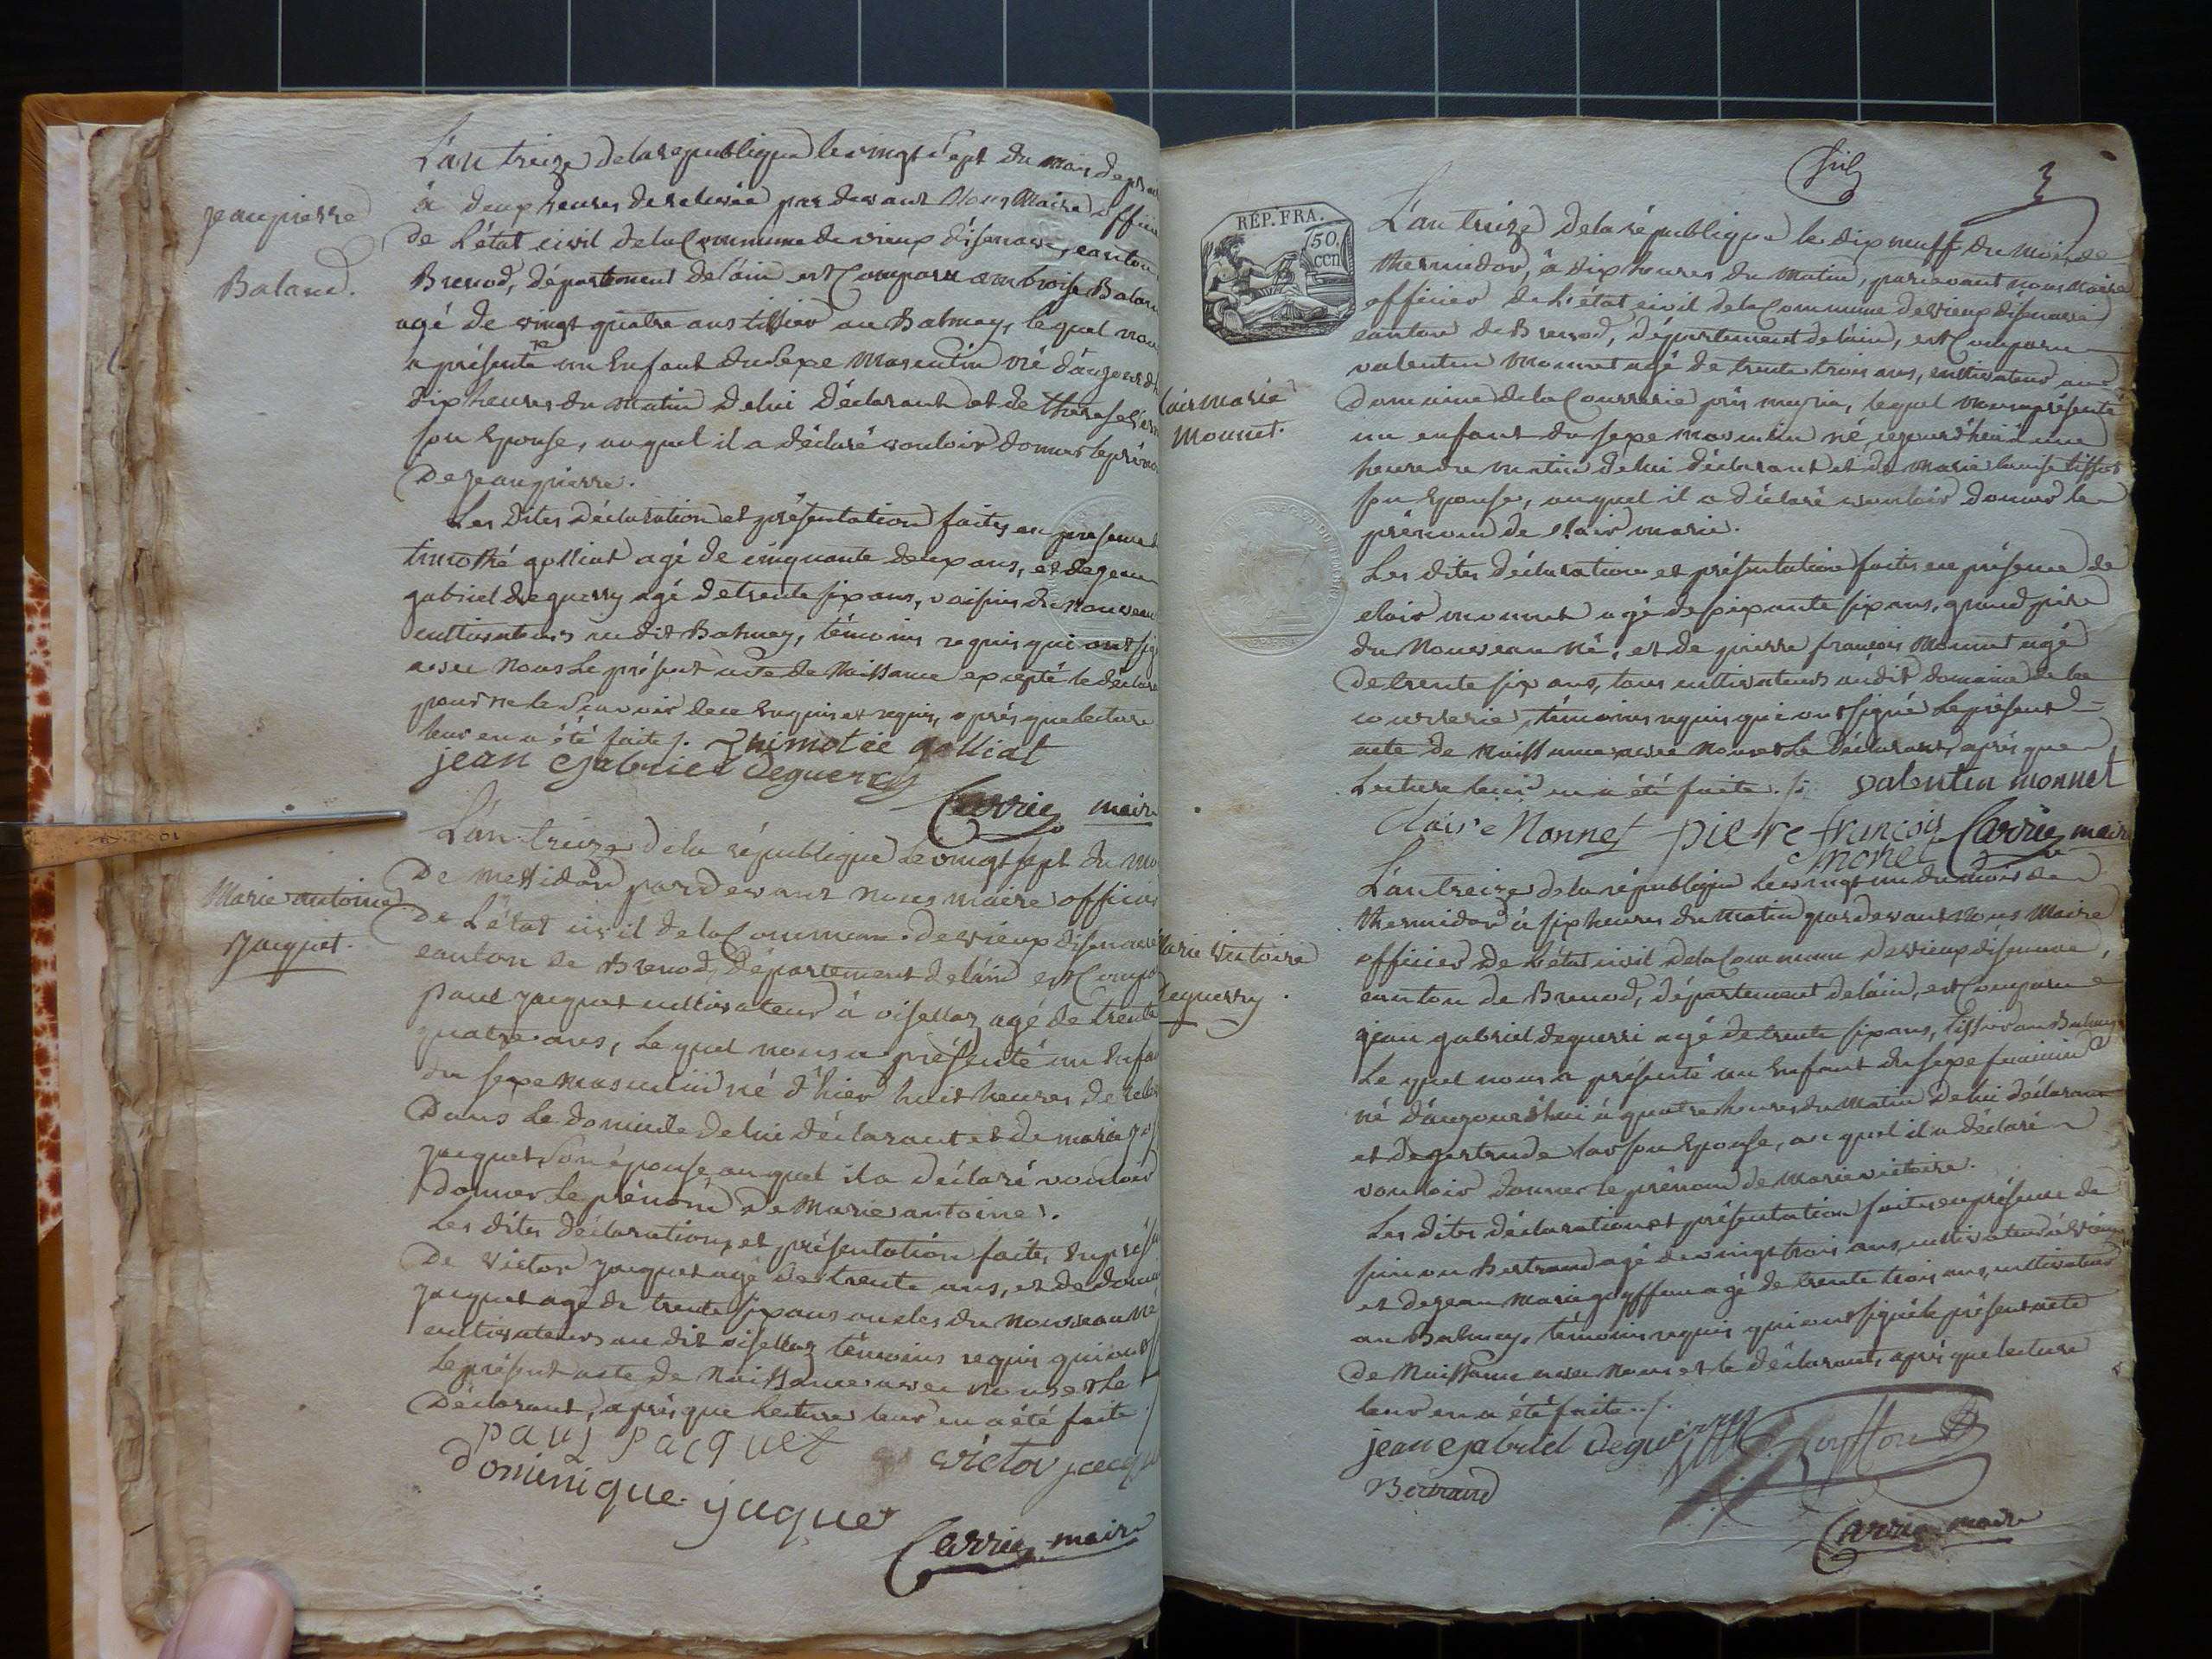 jean pierre
Baland.
L'an treize de la republique le vingt sept du mois de
à deux heures de relevée par devant Nous Maire officier
de L'état civil de la Commune de vieux d'isenave, canton
Brenod, département de l'ain est Comparu ambroise Balan
agé de vingt quatre ans tissier au Balmay, lequel nous
a présenté un Enfant du Sexe Masculin né d'aujourd'h
dix heures du matin de lui déclarant et de therese
son Epouse, auquel il a déclaré vouloir donner le préno
De jean pierre.
Les Dites déclaration et présentation faites en presence
timothé golliat agé de cinquante deux ans, et de jean
gabriel deguerry agé de trente six ans, voisins du nouveau
cultivateurs au dit Balmay, témoins requis qui ont sig
avec Nous Le présent acte de Naissance excepté le déclar
pour ne le Scavoir de ce Enquis et requis, après que lecture
leur en a été faite /. Thimotée golliat
jean Gabriel deguerry
Carrier maire
Marie antoine
Jacquet.
L'an treize de la république le vingt sept du mo
De Messidor pardevant nous maire officier
de L'état civil de la Commune de vieux disenave
canton de Brenod, Département de lain est Comp
paul jacquet cultivateur à oisellaz agé de trente
quatre ans, Lequel nous a présenté un Enfa
du sexe masculin né d'hier huit heures de rele
Dans Le domicile de lui déclarant et de marie
jacquet son épouse auquel il a déclaré vouloir
donner Le prénom de Marie antoine.
Les dites déclaration et présentation faites En prése
De victor jacquet agé de trente ans, et de domi
jacquet agé de trente six ans oncles du nouveau né
cultivateurs au dit oisellaz témoins requis qui ont
Le présent acte de Naissance avec nous et Le
Déclarant, après que Lecture leur en a été faite /
paul jacquet victor jacqu
dominique jaquet
Carrier maire
3
RÉP. FRA.
50.
cen
Clair Marie
Monnet.
L'an treize de la république le dix neuff du mois de
thermidor, à dix heures du matin, pardevant nous Maire
officier de L'état civil de la Commune de vieux disenave
canton de Brenod, Département de lain, est Comparu
valentin Monnet agé de trente trois ans, cultivateur au
Domaine de la Courrerie près meyria, lequel nous a présenté
un enfant du sexe masculin né cejourd'hui à une
heure du matin de lui déclarant et de Marie louise tissot
son Epouse, auquel il a déclaré vouloir donner le
prénom de clair marie.
Les dites déclaration et présentation faites en présence de
clair monnet agé de soixante six ans, grand père
du Nouveau né, et de pierre françois Monnet agé
de trente six ans, tous cultivateurs audit domaine de la
courrerie, témoins requis qui ont signé Le présent
acte de Naissance avec nous et Le Déclarant, après que
Lecture leur en a été faite. /. valentin monnet
Claire Monnet pierre françois monet Carrier maire
Marie Victoire
deguerry.
L'an treize de la république le vingt un du mois de
thermidor à six heures du Matin pardevant nous Maire
officier de L'état civil de la Commune de vieux disenave,
canton de Brenod, Département de lain, est Comparu
jean gabriel deguerri agé de trente six ans, tissier au Balmay
Le quel nous a présenté un Enfant du sexe feminin
né d'aujourdhui à quatre heures du Matin de lui déclarant
et de gertrude son Epouse, au quel il a déclaré
vouloir donner le prénom de Marie victoire.
Les dites déclaration et présentation faites en présence de
simon Bertrand agé de vingt trois ans, cultivateur à vieux
et de jean marie goyffon agé de trente trois ans, cultivateur
au Balmay, témoins requis qui ont signé le présent acte
de Naissance avec Nous et le déclarant, après que lecture
leur en a été faite. /.
jean gabriel deguerry Goyffon
Bertrand
Carrier maire